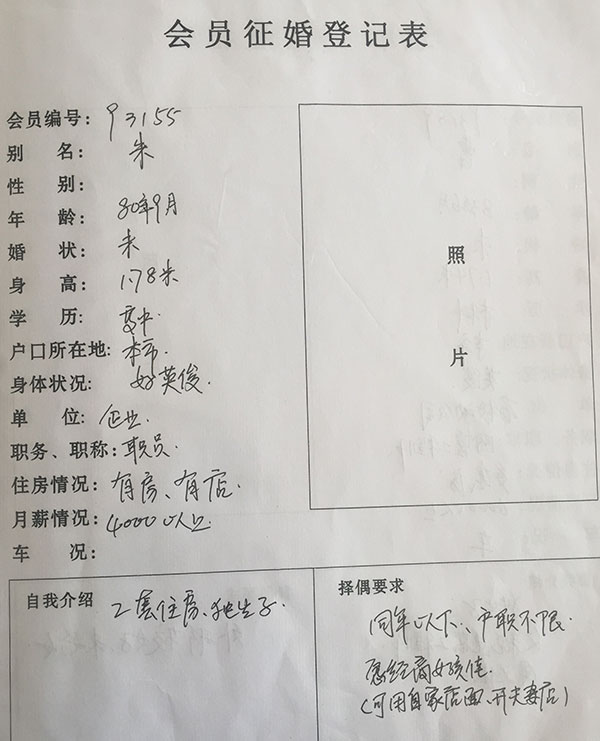 会员征婚登记表
会员编号: 93155
别 名: 朱
性 别:
年 龄: 80年9月
婚 状: 未
身 高: 1.78米
学 历: 高中
户口所在地: 本市.
身体状况: 好英俊.
单 位: 企业.
职务、职称: 职员.
住房情况: 有房、有店.
月薪情况: 4000以上
车 况:
照
片
自我介绍
2套住房、独生子.
择偶要求
同年以下、户职不限.
愿经商女孩佳.
(可用自家店面、开夫妻店)